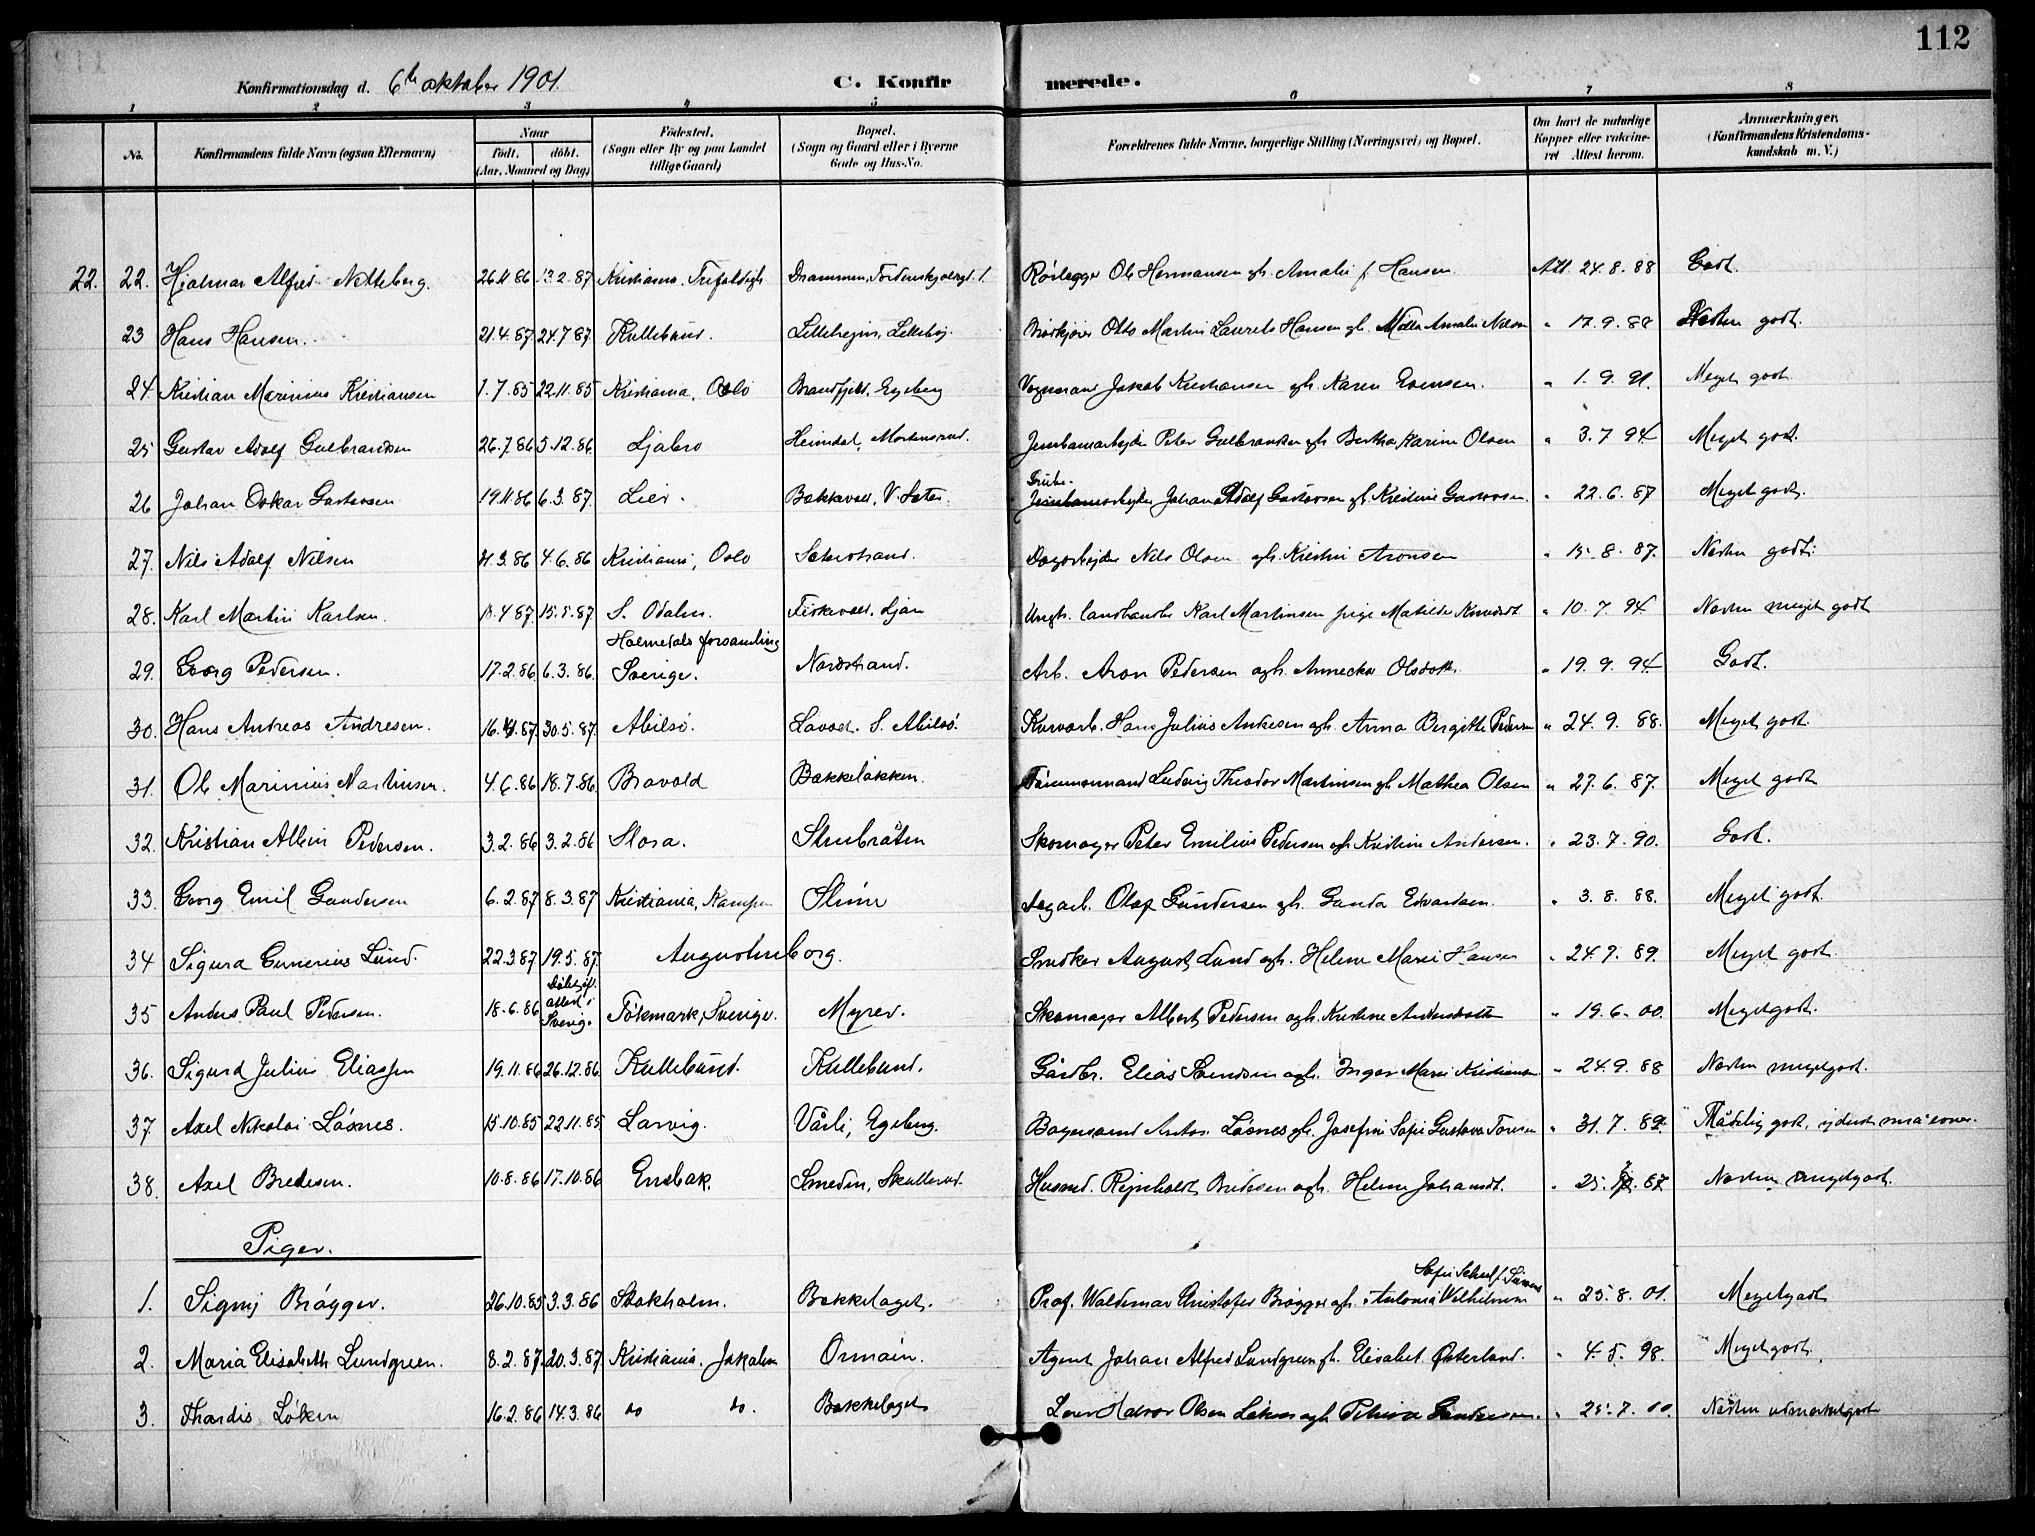 112
Konfirmationsdag d. 6th oktober 1901.
C. Konfirmerede.
1 2 3 4 5 6 7 8
No. Konfirmandens fulde Navn (ogsaa Efternavn) Naar födt. döbt. (Aar, Maaned og Dag) Födested. (Sogn eller By og paa Landet tillige Gaard) Bopæl. (Sogn og Gaard eller i Byerne Gade og Hus-No. Forældrenes fulde Navne, borgerlige Stilling (Næringsvei) og Bopæl. Om havt de naturlige Kopper eller vakcineret Attest herom. Anmærkninger. (Konfirmandens Kristendomskundskab m. V.)
22. 22. Hjalmar Alfred Netteberg. 26.11.86 13.2.87 Kristiania, Trefoldigh. Drammen, Tordenskjoldsgd. 1. Rörlegger Ole Hermansen gh. Amalie f. Hansen. Att. 24.8.88 Godt.
23 Hans Hansen. 21.4.87 24.7.87 Kullebund. Otto Martin Laurits Hansen gh. Amalie Nilsen " 17.9.88 Næsten godt.
24 Kristian Marinius Kristiansen 1.7.85 22.11.85 Kristiania, Oslo Brandfjeld, Egeberg Vognmand Jakob Kristiansen gh. Karen Evensen. " 1.9.91. Meget godt
25 Gustav Adolf Gulbrandsen 26.7.86 5.12.86 Ljabro Heimdal, Mortensrud. Jernbanearbejder Peter Gulbrandsen gh. Bertha Karine Olsen " 3.7 94 Meget godt.
26 Johan Oskar Gustavsen 19.11.86 6.3.87. Lier. Bakkevold, V. Sæter Grube-
Jernbanearbejder Johan Adolf Gustavsen gh. Kristine Gustavsen. " 22.6.87 Meget godt.
27. Nils Adolf Nilsen 21.3.86 4.6.86 Kristiania, Oslo Sæterstrand. Dagarbejder Nils Olsen gh. Kristine Aronsen " 15.8.87. Næsten godt.
28. Karl Martin Karlsen. 11.4.87 15.5.87. S. Odalen. Fiskevold, Ljan Ungk. landhandler Karl Martinsen pige Matilde " 10.7.94 Næsten meget godt
29. Georg Pedersen. 17.2.86 6.3.86. Holmedals forsamling
Sverige. Nordstrand. Arb. Aron Pedersen gh. Annecka Olsdott. " 19.9.94 Godt.
30. Hans Andreas Andresen. 16.4.87. 30.5.87. Abilsö. S. Abilsö. Hans Julius Andresen gh. Anna Birgitte Pedersen " 24.9.88. Meget godt.
31. Ole Marinius Martinsen. 4.6.86 18.7.86 Bravold Bækkeløkken. Tömmermand Ludvig Theodor Martinsen gh. Mathea Olsen " 27.6.87. Meget godt
32. Kristian Albin Pedersen. 3.2.86 3.2.86 Slora. Stubråten Skomager Peter Emilius Pedersen gh. Kristine Andersen. " 23.7.90. Godt.
33. Georg Emil Gundersen 6.2.87 8.3.87 Kristiania, Kampen Dagarb. Olaf Gundersen gh. Gunda Edvardsen. " 3.8.88. Meget godt.
34 Sigurd Gunerius Lund. 22.3.87 19.5.87 Augustenborg. Snedker August Lund gh. Helene Marie Hansen " 24.7.89. Meget godt.
35 Anders Paul Pedersen. 18.6.86 Döbt if.
attest i
Sverige Tökmark, Sverige. Myrer. Skomager Albert Pedersen gh. Kristine Andersdotter " 19.6.00. Meget godt.
36. Sigurd Julius Eliassen 19.11.86 26.12.86 Kullebund. Kullebund. Gårdbr. Elias Svendsen gh. Inger Marie Kristiansen " 24.9.88 Næsten meget godt.
37 Axel Nikolai Lösnes. 15.10.85 22.11.85 Larvig. Vårli, Egeberg. Bagersvend Anton Lösnes gh. Josefine Sofie Gustava Toresen " 31.7.89. Mådelig godt, yderst små evner.
38. Axel Bredesen. 10.8.86 17.10.86 Enebak. Smeden, Skullerud. Husmd. Rejnholdt Bredesen gh. Helene Johansdt. " 25.7.87 Næsten meget godt.
Piger.
1. Signy Brögger. 26.10.85 3.3.86 Stokholm. Bækkelaget. Prof. Waldemar Christofer Brögger gh. Antonia Wilhelmine " 25.8.01. Meget godt
2. Maria Elisabeth Lundgreen. 8.2.87 20.3.87 Kristiania. Jakobsm Ormöin. Agent Johan Alfred Lundgreen gh. Elisabet Österlund. " 4.5.98. Meget godt.
3. Thordis Löken 16.2.86 14.3.86 do do. Bækkelaget Lærer Halvor Olsen Löken gh. Petrine Gundersen. " 25.7.00. Næsten udmærket godt